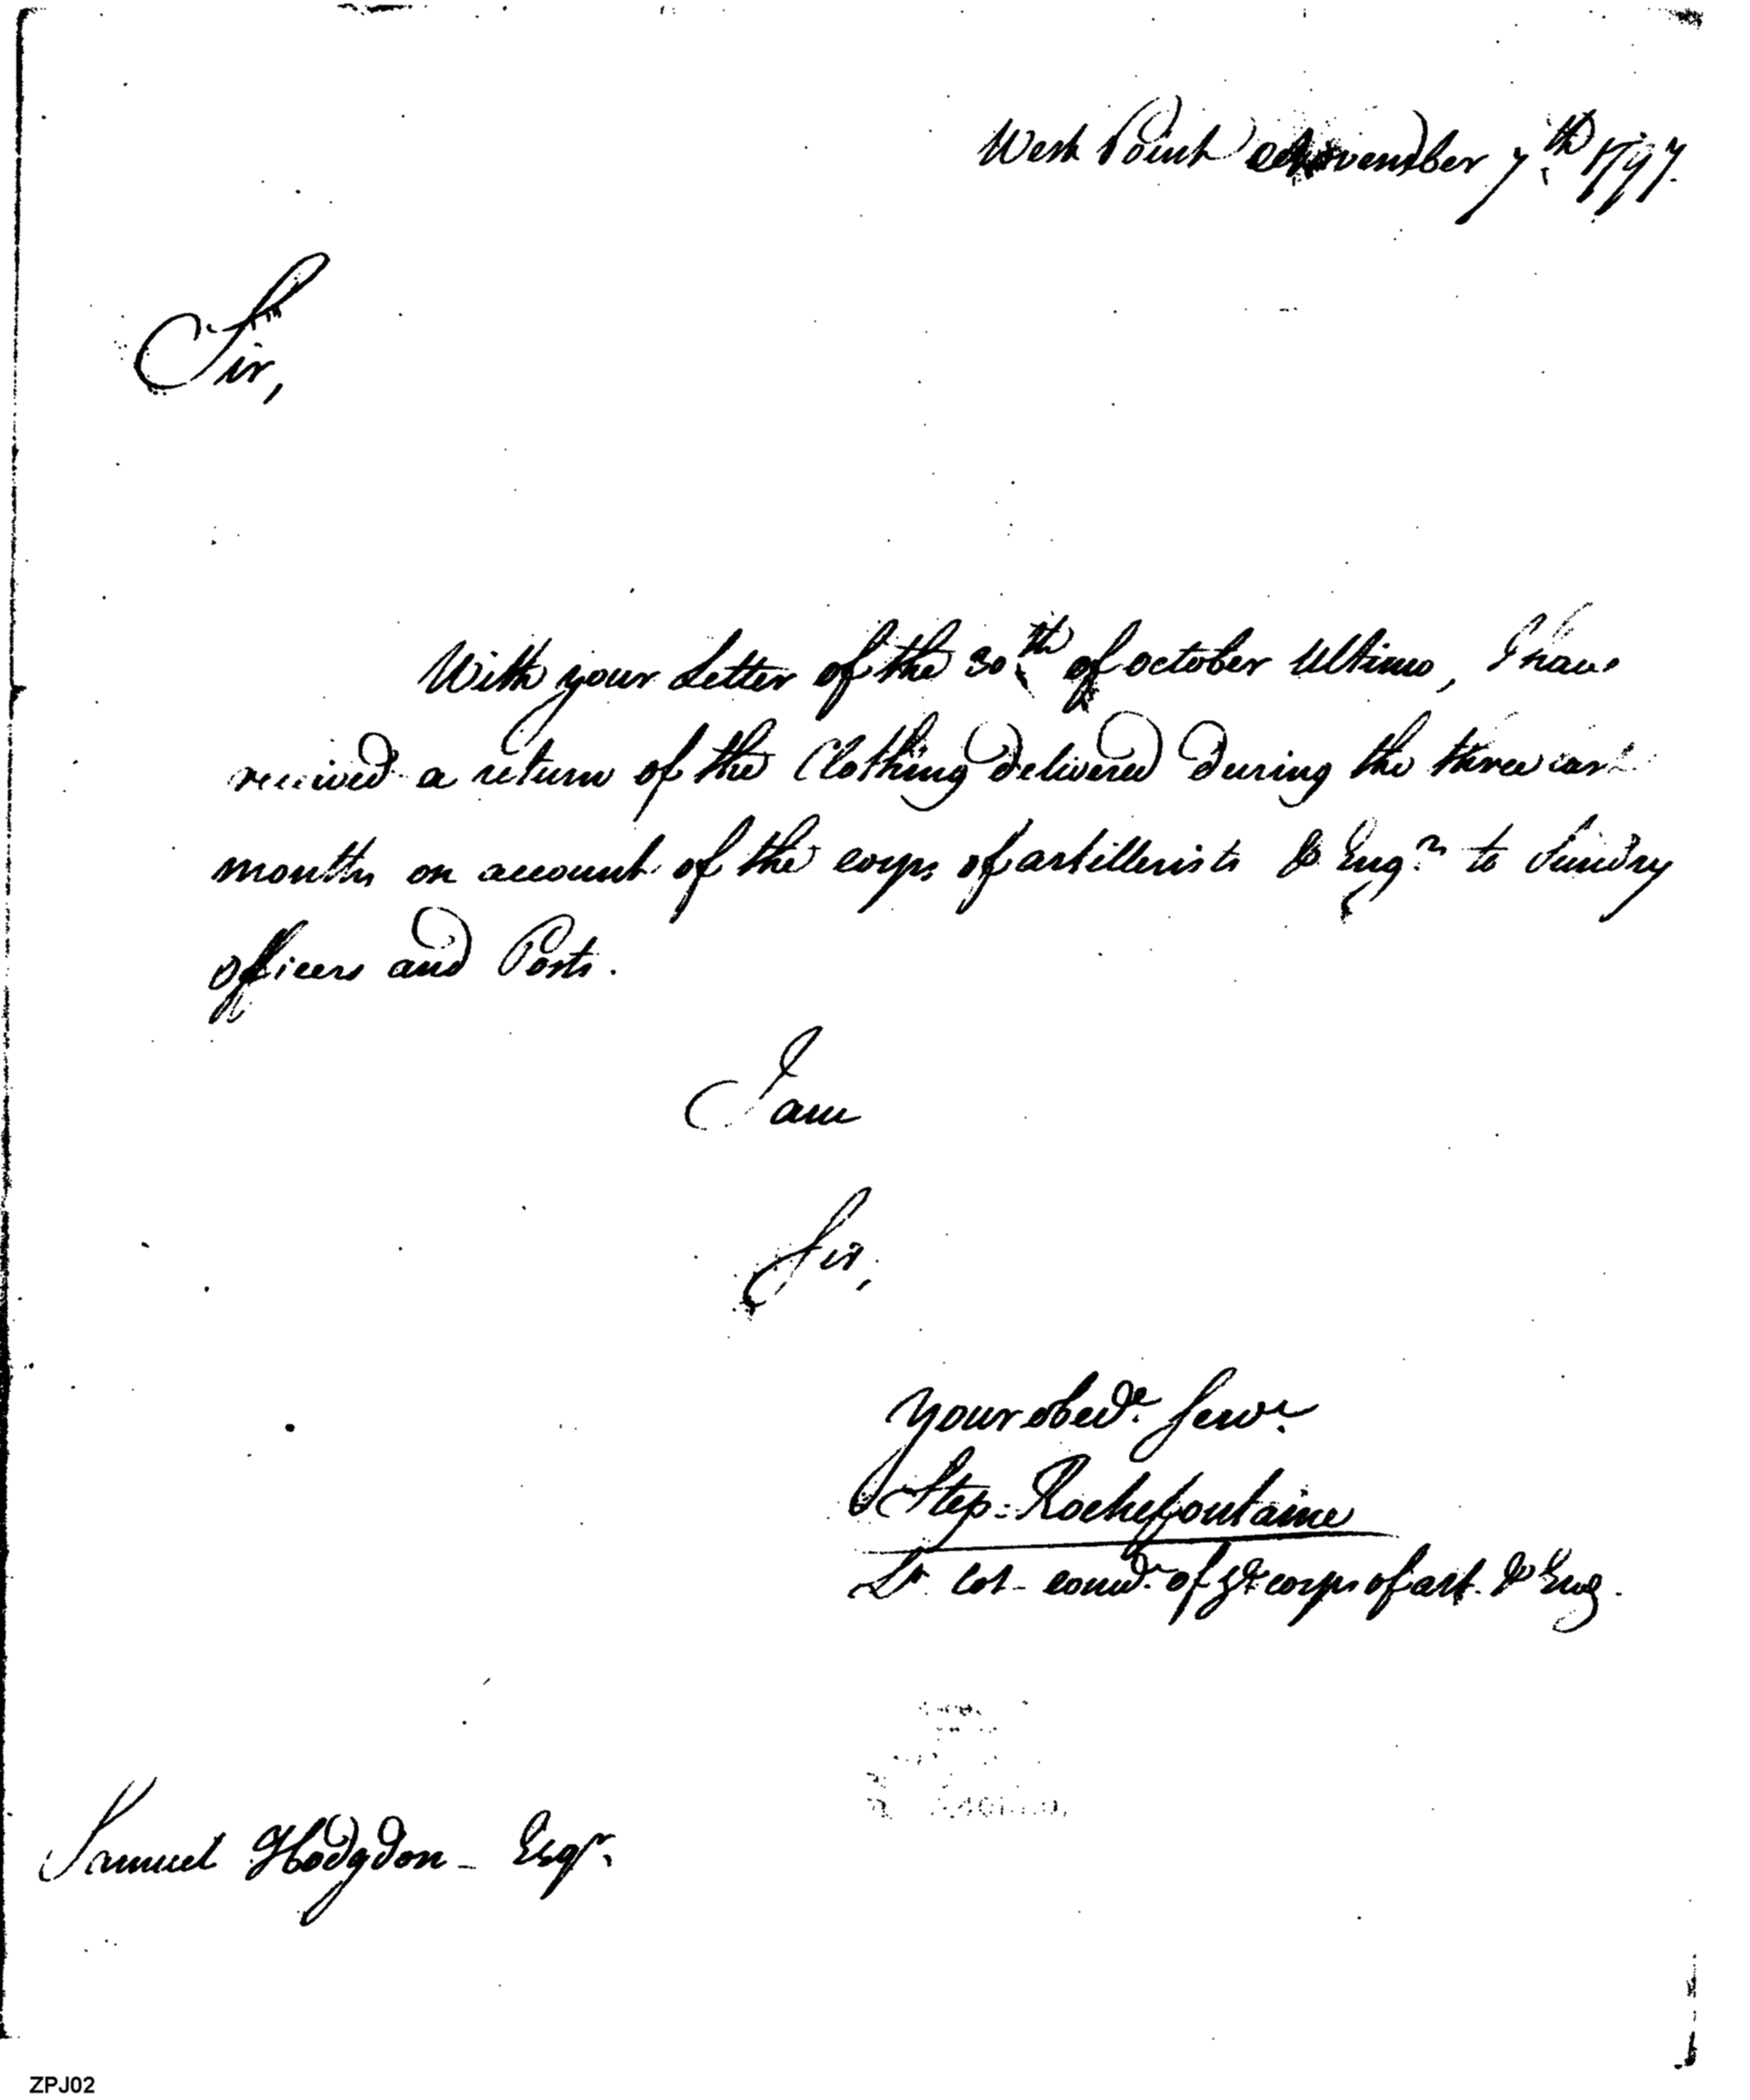 West Point November 7th 1797.
Sir,
With your Letter of the 30th of october Ultimo, I have
received a return of the Clothing delivered during the three last
months on account of the corps of artillerists & Engrs to Sundry
officers and Posts.
I am
Sir,
your obedt. Servt.
Step: Rochefontaine
Lt Col comdt of corps of art. & Eng.
Samuel Hodgdon - Esqr.
ZPJ02